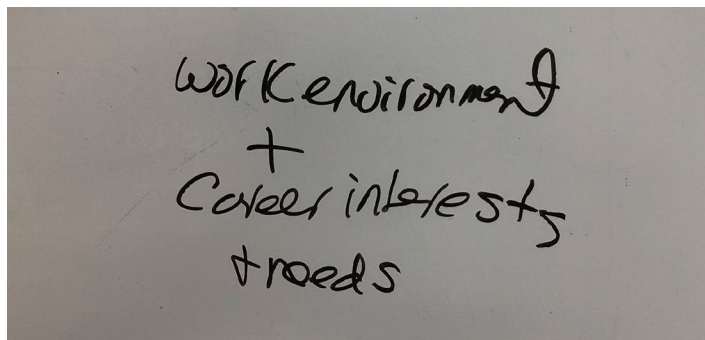 work environment
+
Career interests
+ needs